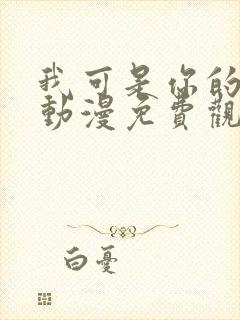 我可是你的
動漫免費觀
白憂